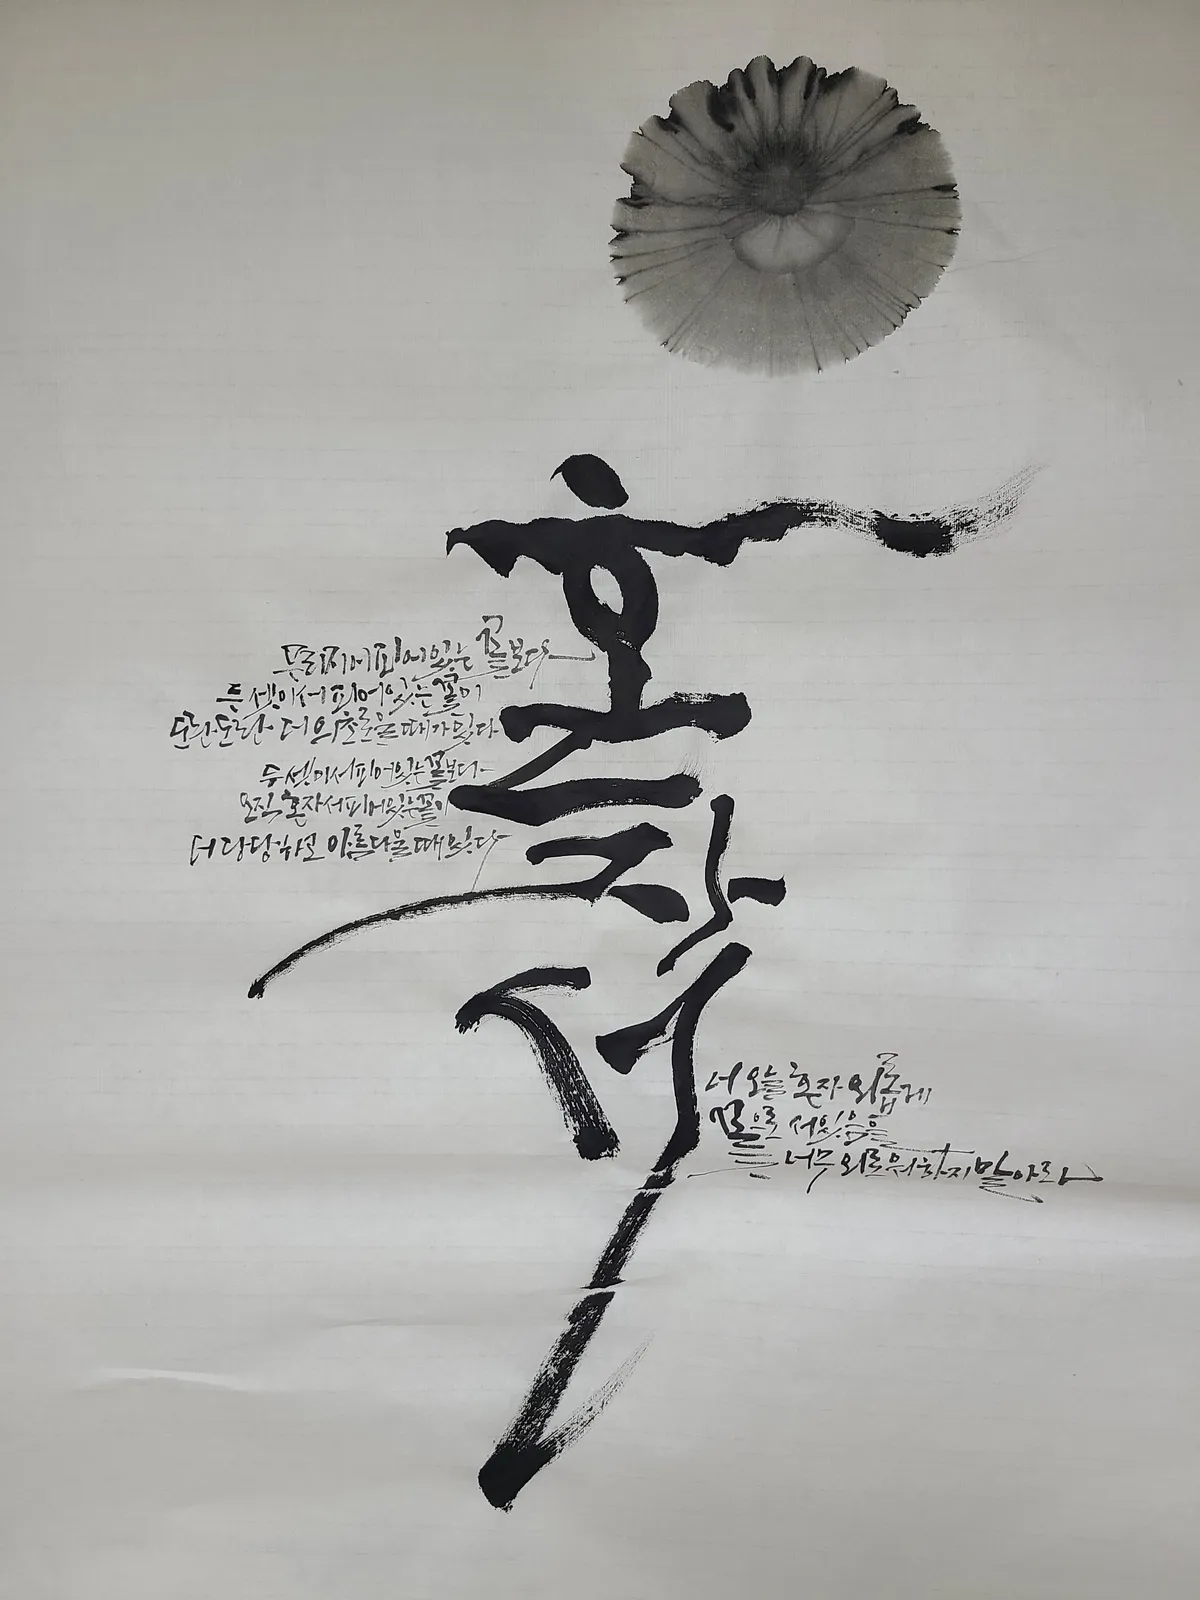 혼자서
무리지어피어있는 꽃보다
두셋이서피어있는꽃이
도란도란 더 의초로울때가있다
두셋이서피어있는꽃보다
오직 혼자서피어있는꽃이
더당당하고 아름다울때있다
너 오늘 혼자 외롭게
꽃으로 서있음을
너무 외로워하지말아라